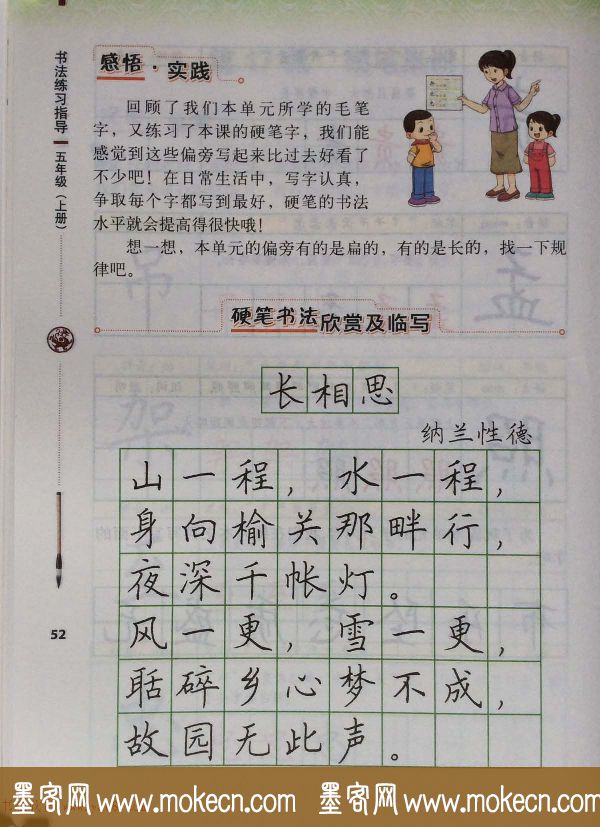 感悟·实践
回顾了我们本单元所学的毛笔
字，又练习了本课的硬笔字，我们能
感觉到这些偏旁写起来比过去好看了
不少吧！在日常生活中，写字认真，
争取每个字都写到最好，硬笔的书法
水平就会提高得很快哦！
想一想，本单元的偏旁有的是扁的，有的是长的，找一下规
律吧。
硬笔书法欣赏及临写
长相思
纳兰性德
山一程，水一程，
身向榆关那畔行，
夜深千帐灯。
风一更，雪一更，
聒碎乡心梦不成，
故园无此声。
书法练习指导 五年级（上册）
52
墨客网 www.mokecn.com 墨客网 www.mokecn.com